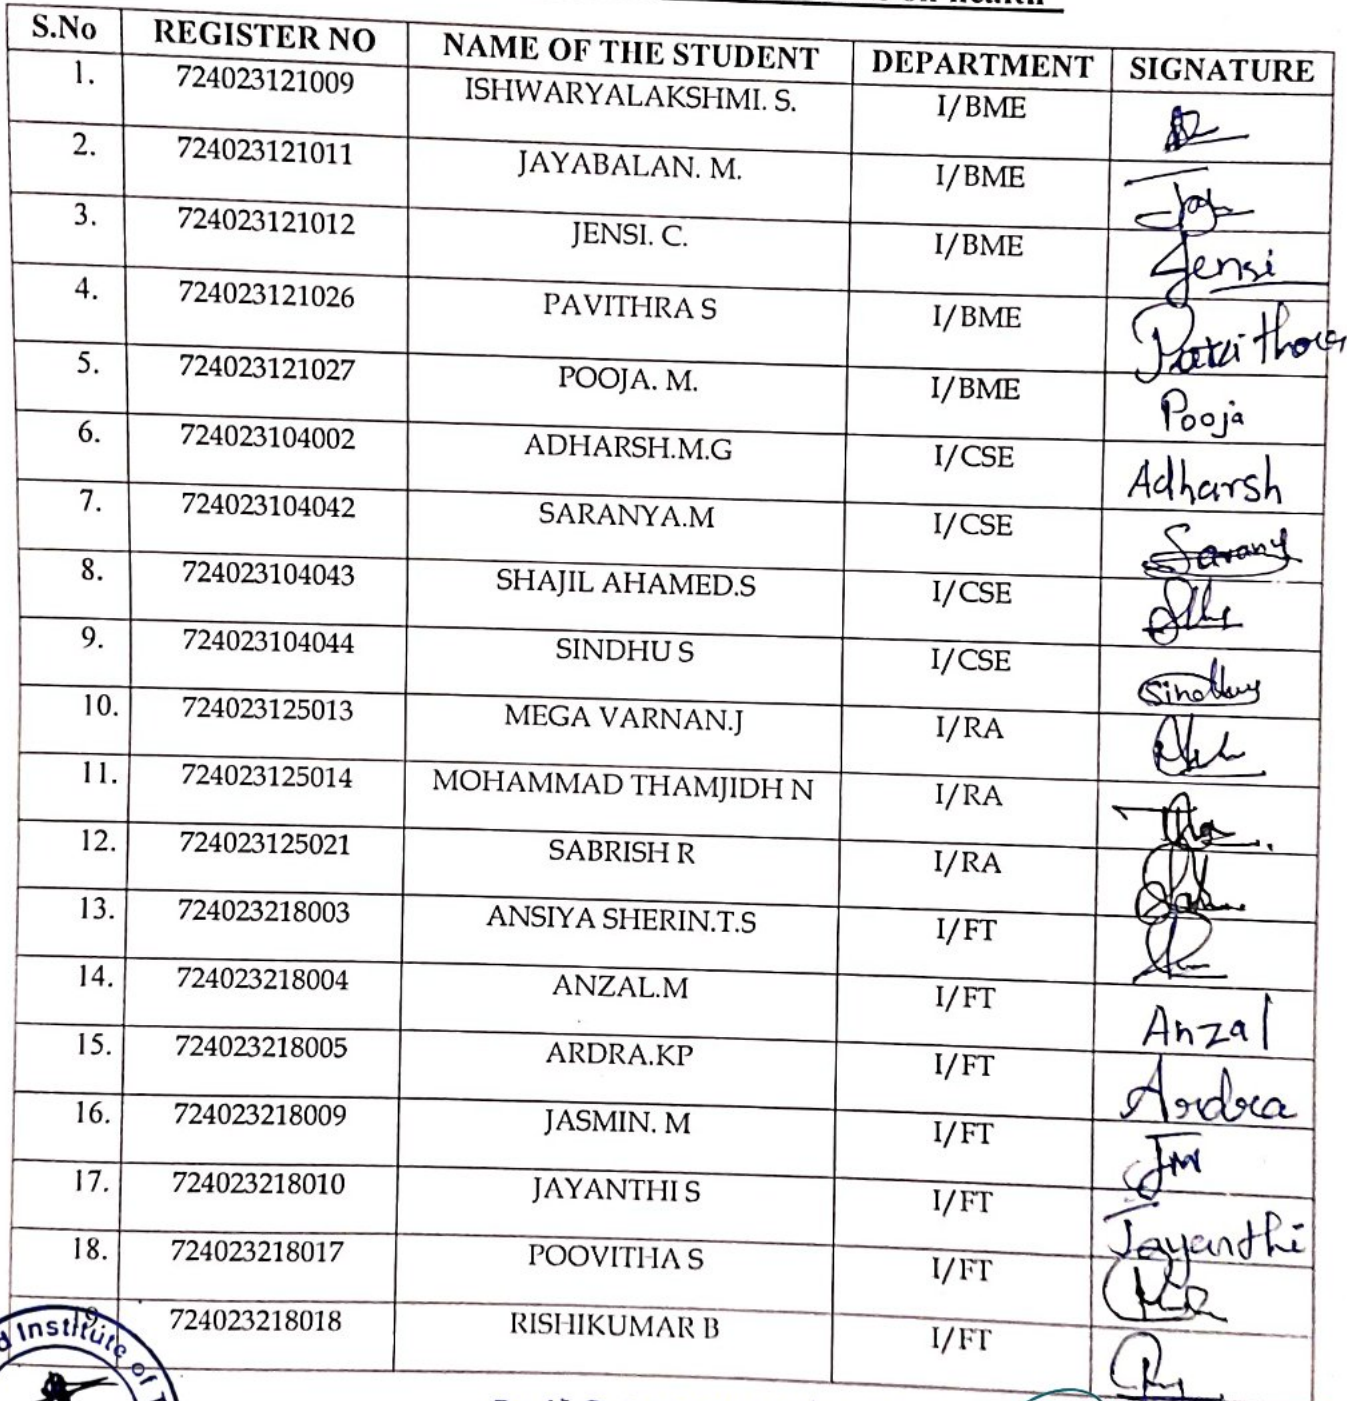 health
S.No REGISTER NO NAME OF THE STUDENT DEPARTMENT SIGNATURE
1. 724023121009 ISHWARYALAKSHMI. S. I/BME
2. 724023121011 JAYABALAN. M. I/BME
3. 724023121012 JENSI. C. I/BME Jensi
4. 724023121026 PAVITHRA S I/BME Pavithra
5. 724023121027 POOJA. M. I/BME Pooja
6. 724023104002 ADHARSH.M.G I/CSE Adharsh
7. 724023104042 SARANYA.M I/CSE Sarany
8. 724023104043 SHAJIL AHAMED.S I/CSE
9. 724023104044 SINDHU S I/CSE Sindhu
10. 724023125013 MEGA VARNAN.J I/RA
11. 724023125014 MOHAMMAD THAMJIDH N I/RA
12. 724023125021 SABRISH R I/RA
13. 724023218003 ANSIYA SHERIN.T.S I/FT
14. 724023218004 ANZAL.M I/FT Anzal
15. 724023218005 ARDRA.KP I/FT Ardra
16. 724023218009 JASMIN. M I/FT
17. 724023218010 JAYANTHI S I/FT Jayanthi
18. 724023218017 POOVITHA S I/FT
19. 724023218018 RISHIKUMAR B I/FT
Institute of